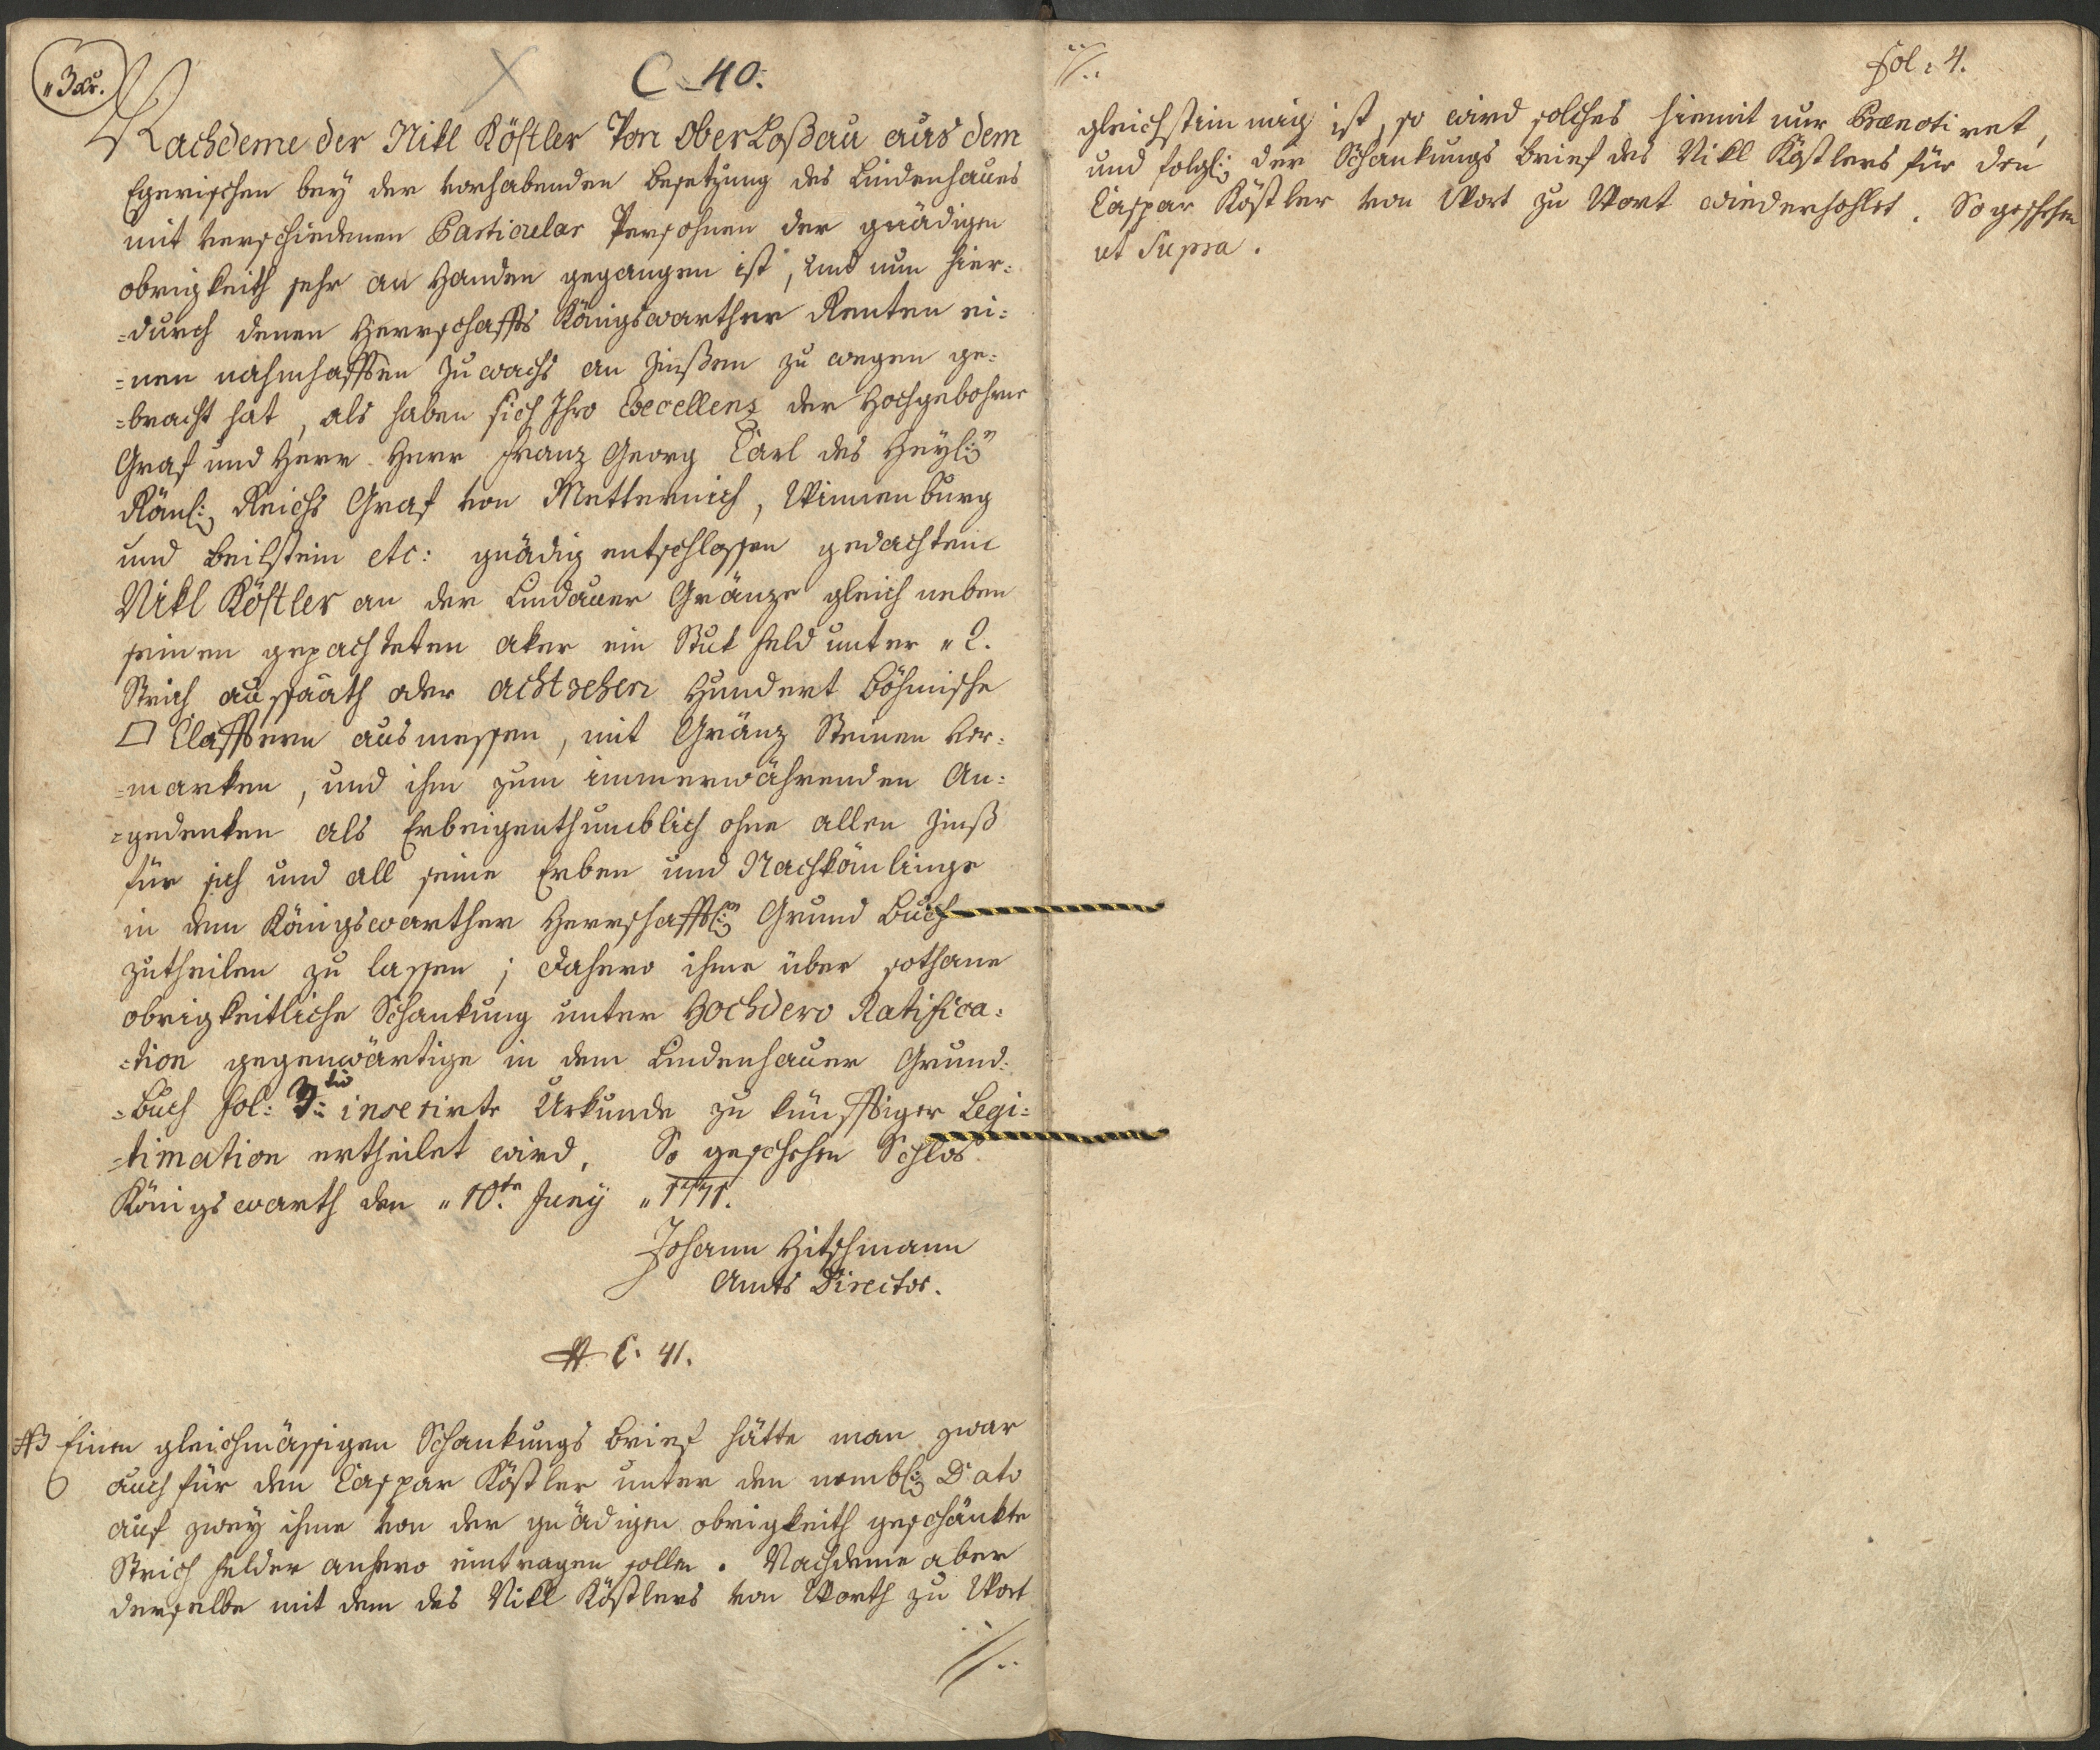 „3 xr.
C 40.
Nachdeme der Nikl Köstler Von OberLoßau aus dem
Egerischen bey der vorhabenden Besetzung des Lindenhaues
mit verschiedenen Particular Persohnen der gnädigen
obrigkeith sehr an Handen gegangen ist, und nun hier=
=durch denen Herrschaffts Königswarther Renten ei=
=nen nahmhafften Zuwachs an Zinßen zu wegen ge=
=bracht hat, als haben sich Ihro Excellenz der Hochgebohrne
Graf und Herr Herr Franz Georg Carl des Heyl:n
Röml: Reichs Graf von Metternich, Winnenburg
und Beilstein etc: gnädig entschlossen gedachtem
Nikl Köstler an der Lindauer Gränze gleich neben
seinen gepachteten aker ein Stuk Feld unter „2.
Strich aussaath oder achtzehen Hundert Böhmische
□ Clafftern ausmessen, mit Gränz Steinen ver=
=marken, und ihm zum immerwährenden An=
=gedenken als Erbeigenthumblich ohne allen Zinß
für sich und all seine Erben und Nachkömlinge
in dem Königswarther Herrschafftl:n Grund Buch
zutheilen zu lassen; dahero ihme über sothane
obrigkeitliche Schankung unter Hochdero Ratifica=
=tion gegenwärtige in dem Lindenhauer Grund=
=Buch fol: 3:tio inserirte Urkunde zu künfftiger Legi=
=timation ertheilet wird. So geschehen Schlos
Königswarth den „10.te Juny „1771.
Johann Hitschmann
Amts Director.
C. 41.
Einen gleichmässigen Schankungs Brief hätte man zwar
auch für den Caspar Köstler unter den nembl: Dato
auf zwey ihme von der gnädigen obrigkeith geschänkte
Strich Felder anhero eintragen sollen. Nachdeme aber
derselbe mit dem des Nikl Köstlers von Worth zu Wort
//..
//..
fol: 4.
gleichstimmig ist, so wird solches hiemit nur Prænotiret,
und folgl: der Schankungs Brief des Nikl Köstlers für den
Caspar Köstler von Wort zu Wort wiederhohlet. So geschehen
ut Supra.